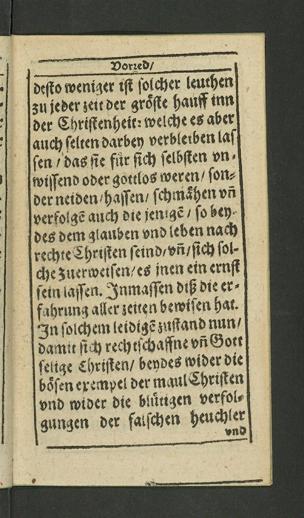 Vorred/
desto weniger ist solcher leuthen
zu jeder zeit der gröste hauff inn
der Christenheit: welche es aber
auch selten darbey verbleiben las-
sen / das sie für sich selbsten vn-
wissend oder gottlos weren / son-
der neiden / hassen / schmähen vn̄
verfolgē auch die jenigē / so bey-
des dem glauben vnd leben nach
rechte Christen seind / vn̄ / sich sol-
che zuerweisen / es jnen ein ernst
sein lassen. Inmassen diß die er-
fahrung aller zeiten bewisen hat.
In solchem leidigē zustand nun /
damit sich rechtschaffne vn̄ Gott
selige Christen / beydes wider die
bösen exempel der maul Christen
vnd wider die blütigen verfol-
gungen der falschen heuchler
vnd